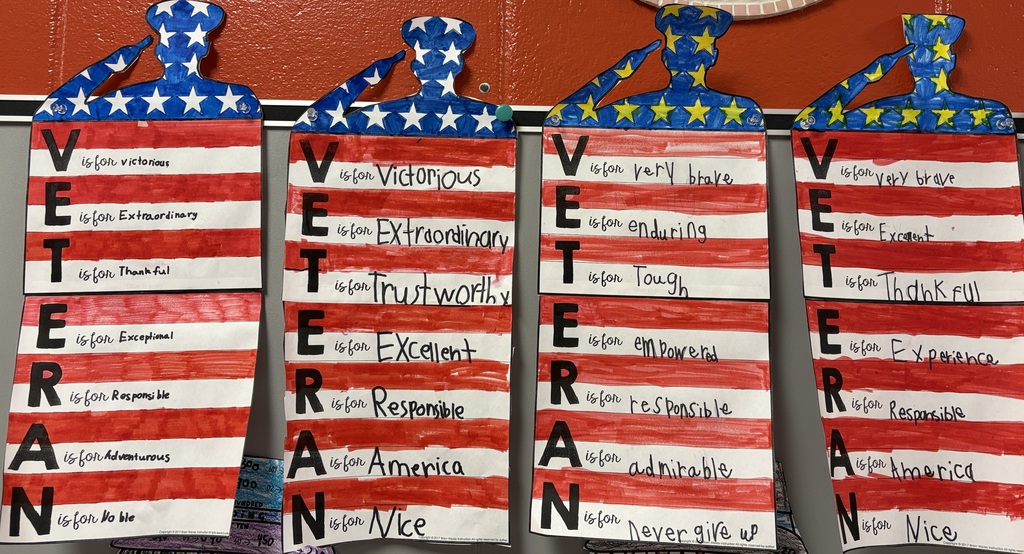 V is for victorious
E is for Extraordinary
T is for Thankful
E is for Exceptional
R is for Responsible
A is for Adventurous
N is for Noble
V is for Victorious
E is for Extraordinary
T is for Trustworthy
E is for Excellent
R is for Responsible
A is for America
N is for Nice
V is for very brave
E is for enduring
T is for Tough
E is for empowered
R is for responsible
A is for admirable
N is for never give up
V is for very brave
E is for Excellent
T is for Thankful
E is for Experience
R is for Responsible
A is for America
N is for Nice
300
450